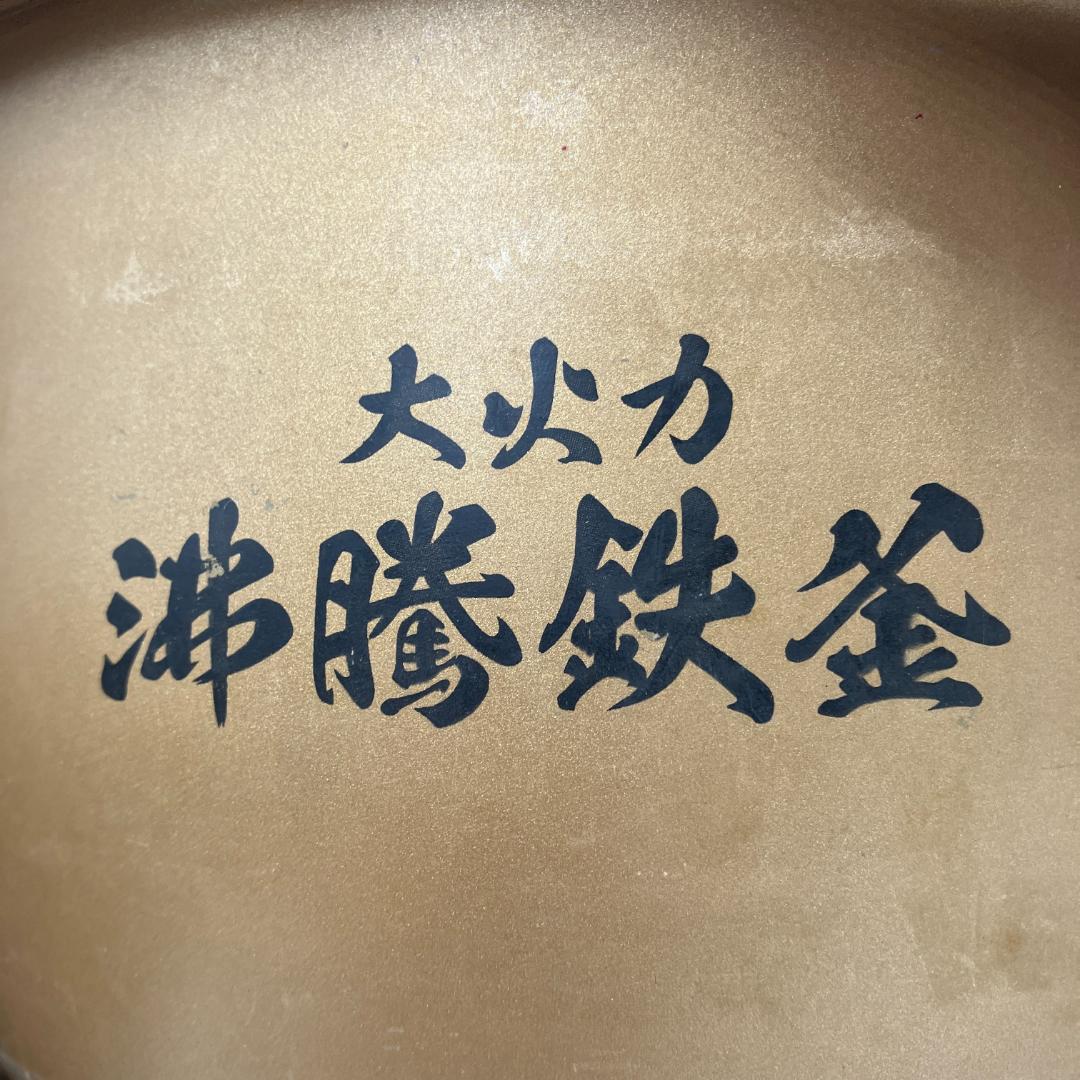 大火力
沸騰鉄釜